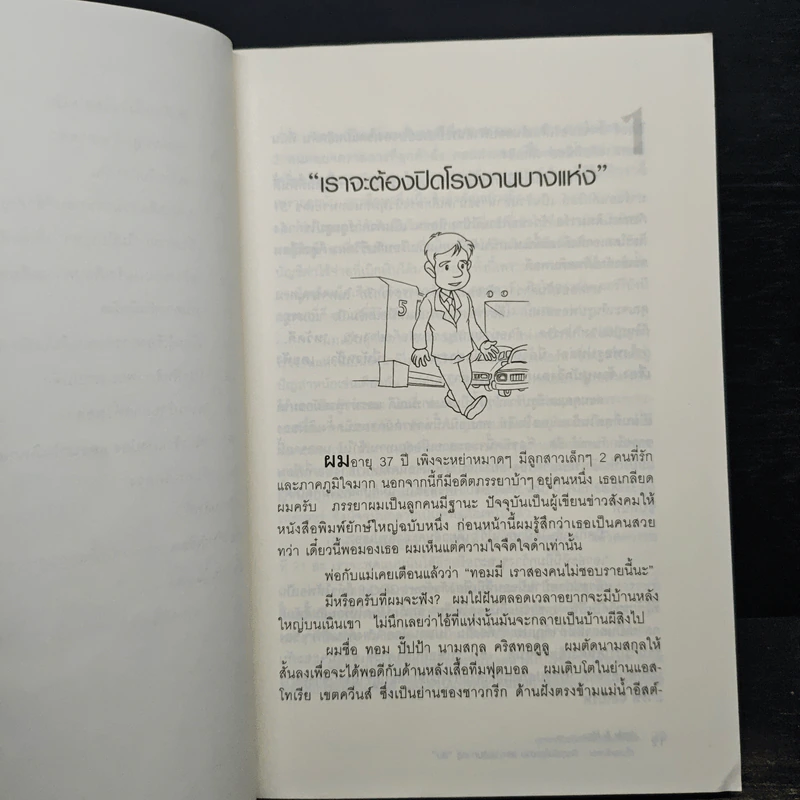 1
“เราจะต้องปิดโรงงานบางแห่ง”
5
ผมอายุ 37 ปี เพิ่งจะหย่าหมาดๆ มีลูกสาวเล็กๆ 2 คนที่รัก
และภาคภูมิใจมาก นอกจากนี้ก็มีอดีตภรรยาบ้าๆ อยู่คนหนึ่ง เธอเกลียด
ผมครับ ภรรยาผมเป็นลูกคนมีฐานะ ปัจจุบันเป็นผู้เขียนข่าวสังคมให้
หนังสือพิมพ์ยักษ์ใหญ่ฉบับหนึ่ง ก่อนหน้านี้ผมรู้สึกว่าเธอเป็นคนสวย
ทว่า เดี๋ยวนี้พอมองเธอ ผมเห็นแต่ความใจจืดใจดำเท่านั้น
พ่อกับแม่เคยเตือนแล้วว่า “ทอมมี่ เราสองคนไม่ชอบรายนี้นะ”
มีหรือครับที่ผมจะฟัง? ผมใฝ่ฝันตลอดเวลาอยากจะมีบ้านหลัง
ใหญ่บนเนินเขา ไม่นึกเลยว่าไอ้ที่แห่งนั้นมันจะกลายเป็นบ้านผีสิงไป
ผมชื่อ ทอม ปั๊ปป้า นามสกุล คริสทอดูลู ผมตัดนามสกุลให้
สั้นลงเพื่อจะได้พอดีกับด้านหลังเสื้อทีมฟุตบอล ผมเติบโตในย่านแอส-
โทเรีย เขตควีนส์ ซึ่งเป็นย่านของชาวกรีก ด้านฝั่งตรงข้ามแม่น้ำอีสต์-